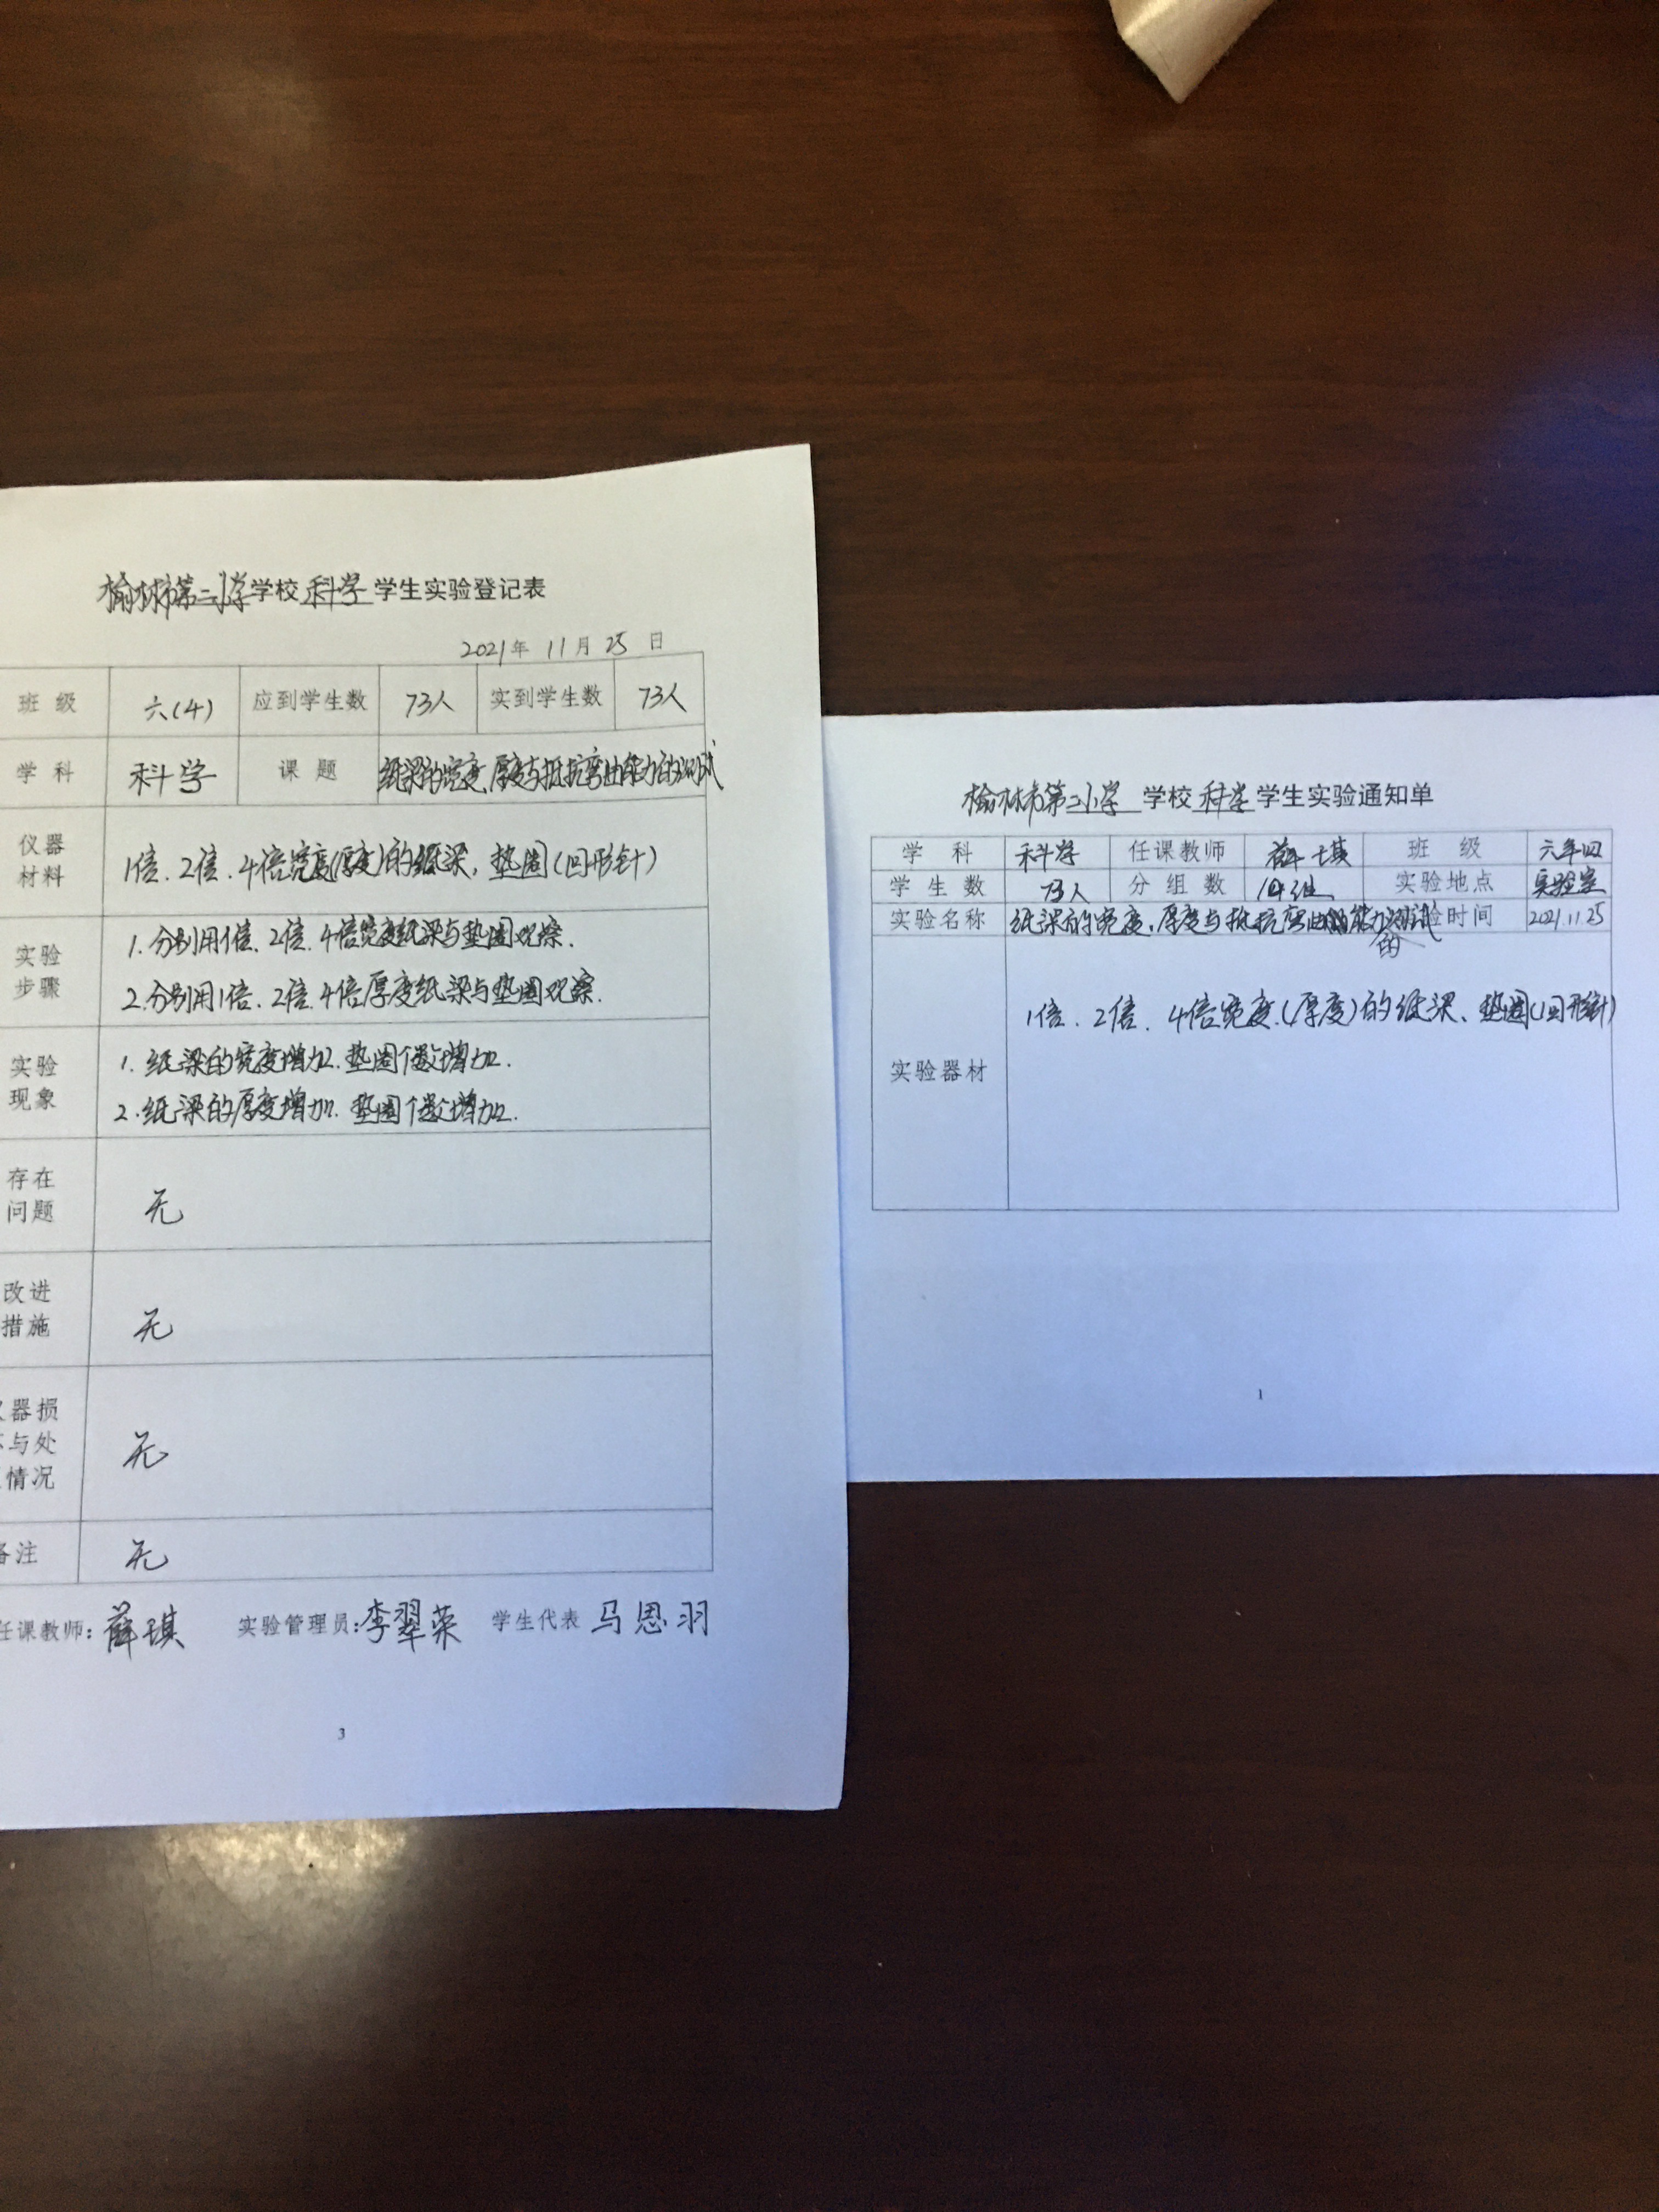 榆林市第二小学学校 科学 学生实验登记表
2021年 11月 25 日
班级 六(4) 应到学生数 73人 实到学生数 73人
学科 科学 课题 纸梁的宽度、厚度与抵抗弯曲能力的测试
仪器
材料
1倍、2倍、4倍宽度(厚度)的纸梁，垫圈(回形针)
实验
步骤
1. 分别用1倍、2倍、4倍宽度纸梁与垫圈观察.
2. 分别用1倍、2倍、4倍厚度纸梁与垫圈观察.
实验
现象
1. 纸梁的宽度增加.垫圈个数增加.
2. 纸梁的厚度增加.垫圈个数增加.
存在
问题
无
改进
措施
无
器损
与处
情况
无
备注 无
任课教师：薛琪 实验管理员：李翠荣 学生代表 马思羽
3
榆林市第二小学 学校 科学 学生实验通知单
学科 科学 任课教师 薛琪 班级 六年四
学生数 73人 分组数 组 实验地点 实验室
实验名称 纸梁的宽度、厚度与抵抗弯曲的能力的测试 验时间 2021.11.25
实验器材
1倍、2倍、4倍宽度(厚度)的纸梁、垫圈(回形针)
1